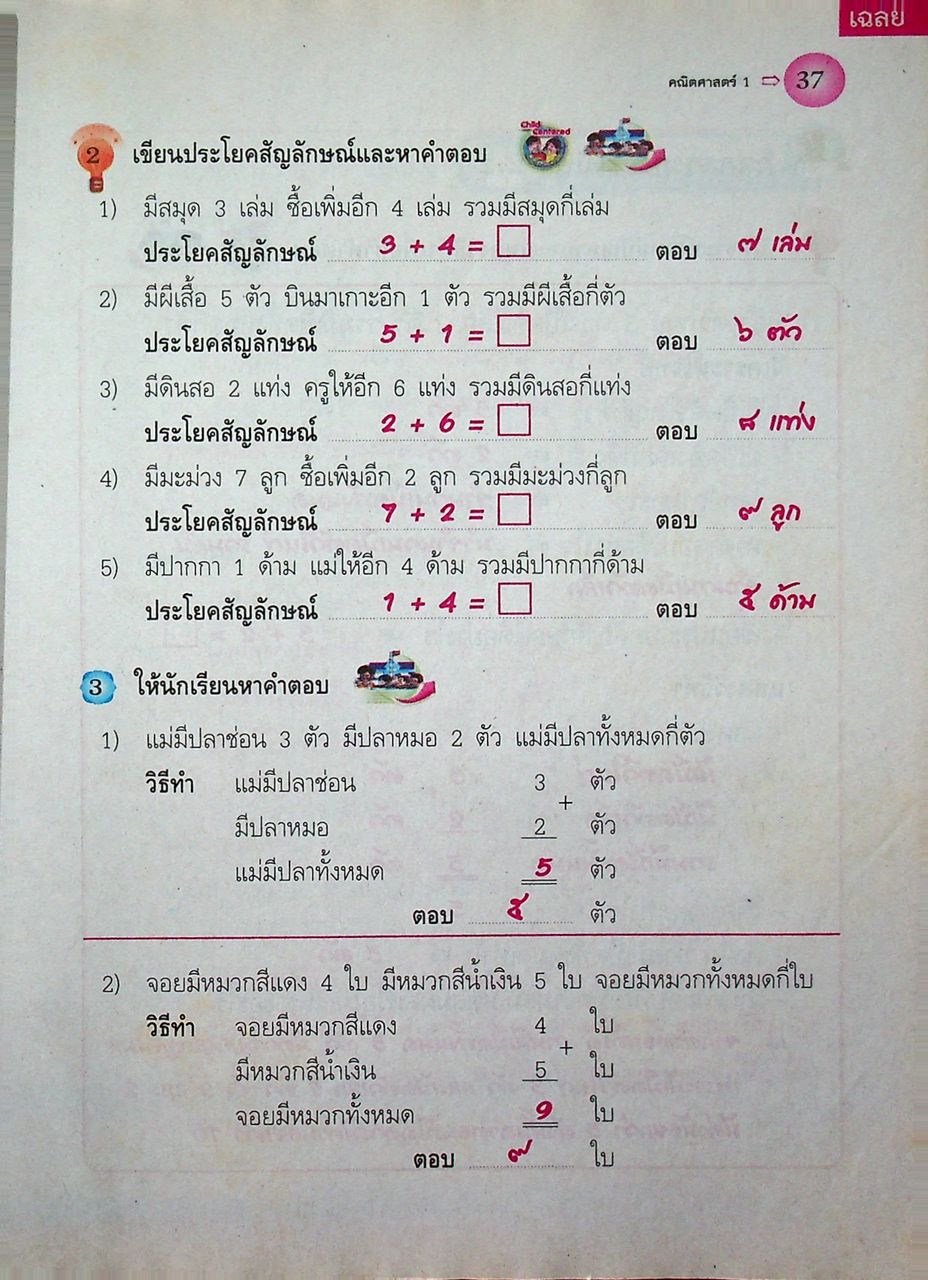 เฉลย
คณิตศาสตร์ 1 ⇨ 37
2 เขียนประโยคสัญลักษณ์และหาคำตอบ
Child Centered
1) มีสมุด 3 เล่ม ซื้อเพิ่มอีก 4 เล่ม รวมมีสมุดกี่เล่ม
ประโยคสัญลักษณ์ 3 + 4 = □ ตอบ ๗ เล่ม
2) มีผีเสื้อ 5 ตัว บินมาเกาะอีก 1 ตัว รวมมีผีเสื้อกี่ตัว
ประโยคสัญลักษณ์ 5 + 1 = □ ตอบ ๖ ตัว
3) มีดินสอ 2 แท่ง ครูให้อีก 6 แท่ง รวมมีดินสอกี่แท่ง
ประโยคสัญลักษณ์ 2 + 6 = □ ตอบ ๘ แท่ง
4) มีมะม่วง 7 ลูก ซื้อเพิ่มอีก 2 ลูก รวมมีมะม่วงกี่ลูก
ประโยคสัญลักษณ์ 7 + 2 = □ ตอบ ๙ ลูก
5) มีปากกา 1 ด้าม แม่ให้อีก 4 ด้าม รวมมีปากกากี่ด้าม
ประโยคสัญลักษณ์ 1 + 4 = □ ตอบ ๕ ด้าม
3 ให้นักเรียนหาคำตอบ
1) แม่มีปลาช่อน 3 ตัว มีปลาหมอ 2 ตัว แม่มีปลาทั้งหมดกี่ตัว
วิธีทำ แม่มีปลาช่อน 3 ตัว
+
มีปลาหมอ 2 ตัว
แม่มีปลาทั้งหมด 5 ตัว
ตอบ ๕ ตัว
2) จอยมีหมวกสีแดง 4 ใบ มีหมวกสีน้ำเงิน 5 ใบ จอยมีหมวกทั้งหมดกี่ใบ
วิธีทำ จอยมีหมวกสีแดง 4 ใบ
+
มีหมวกสีน้ำเงิน 5 ใบ
จอยมีหมวกทั้งหมด 9 ใบ
ตอบ ๙ ใบ